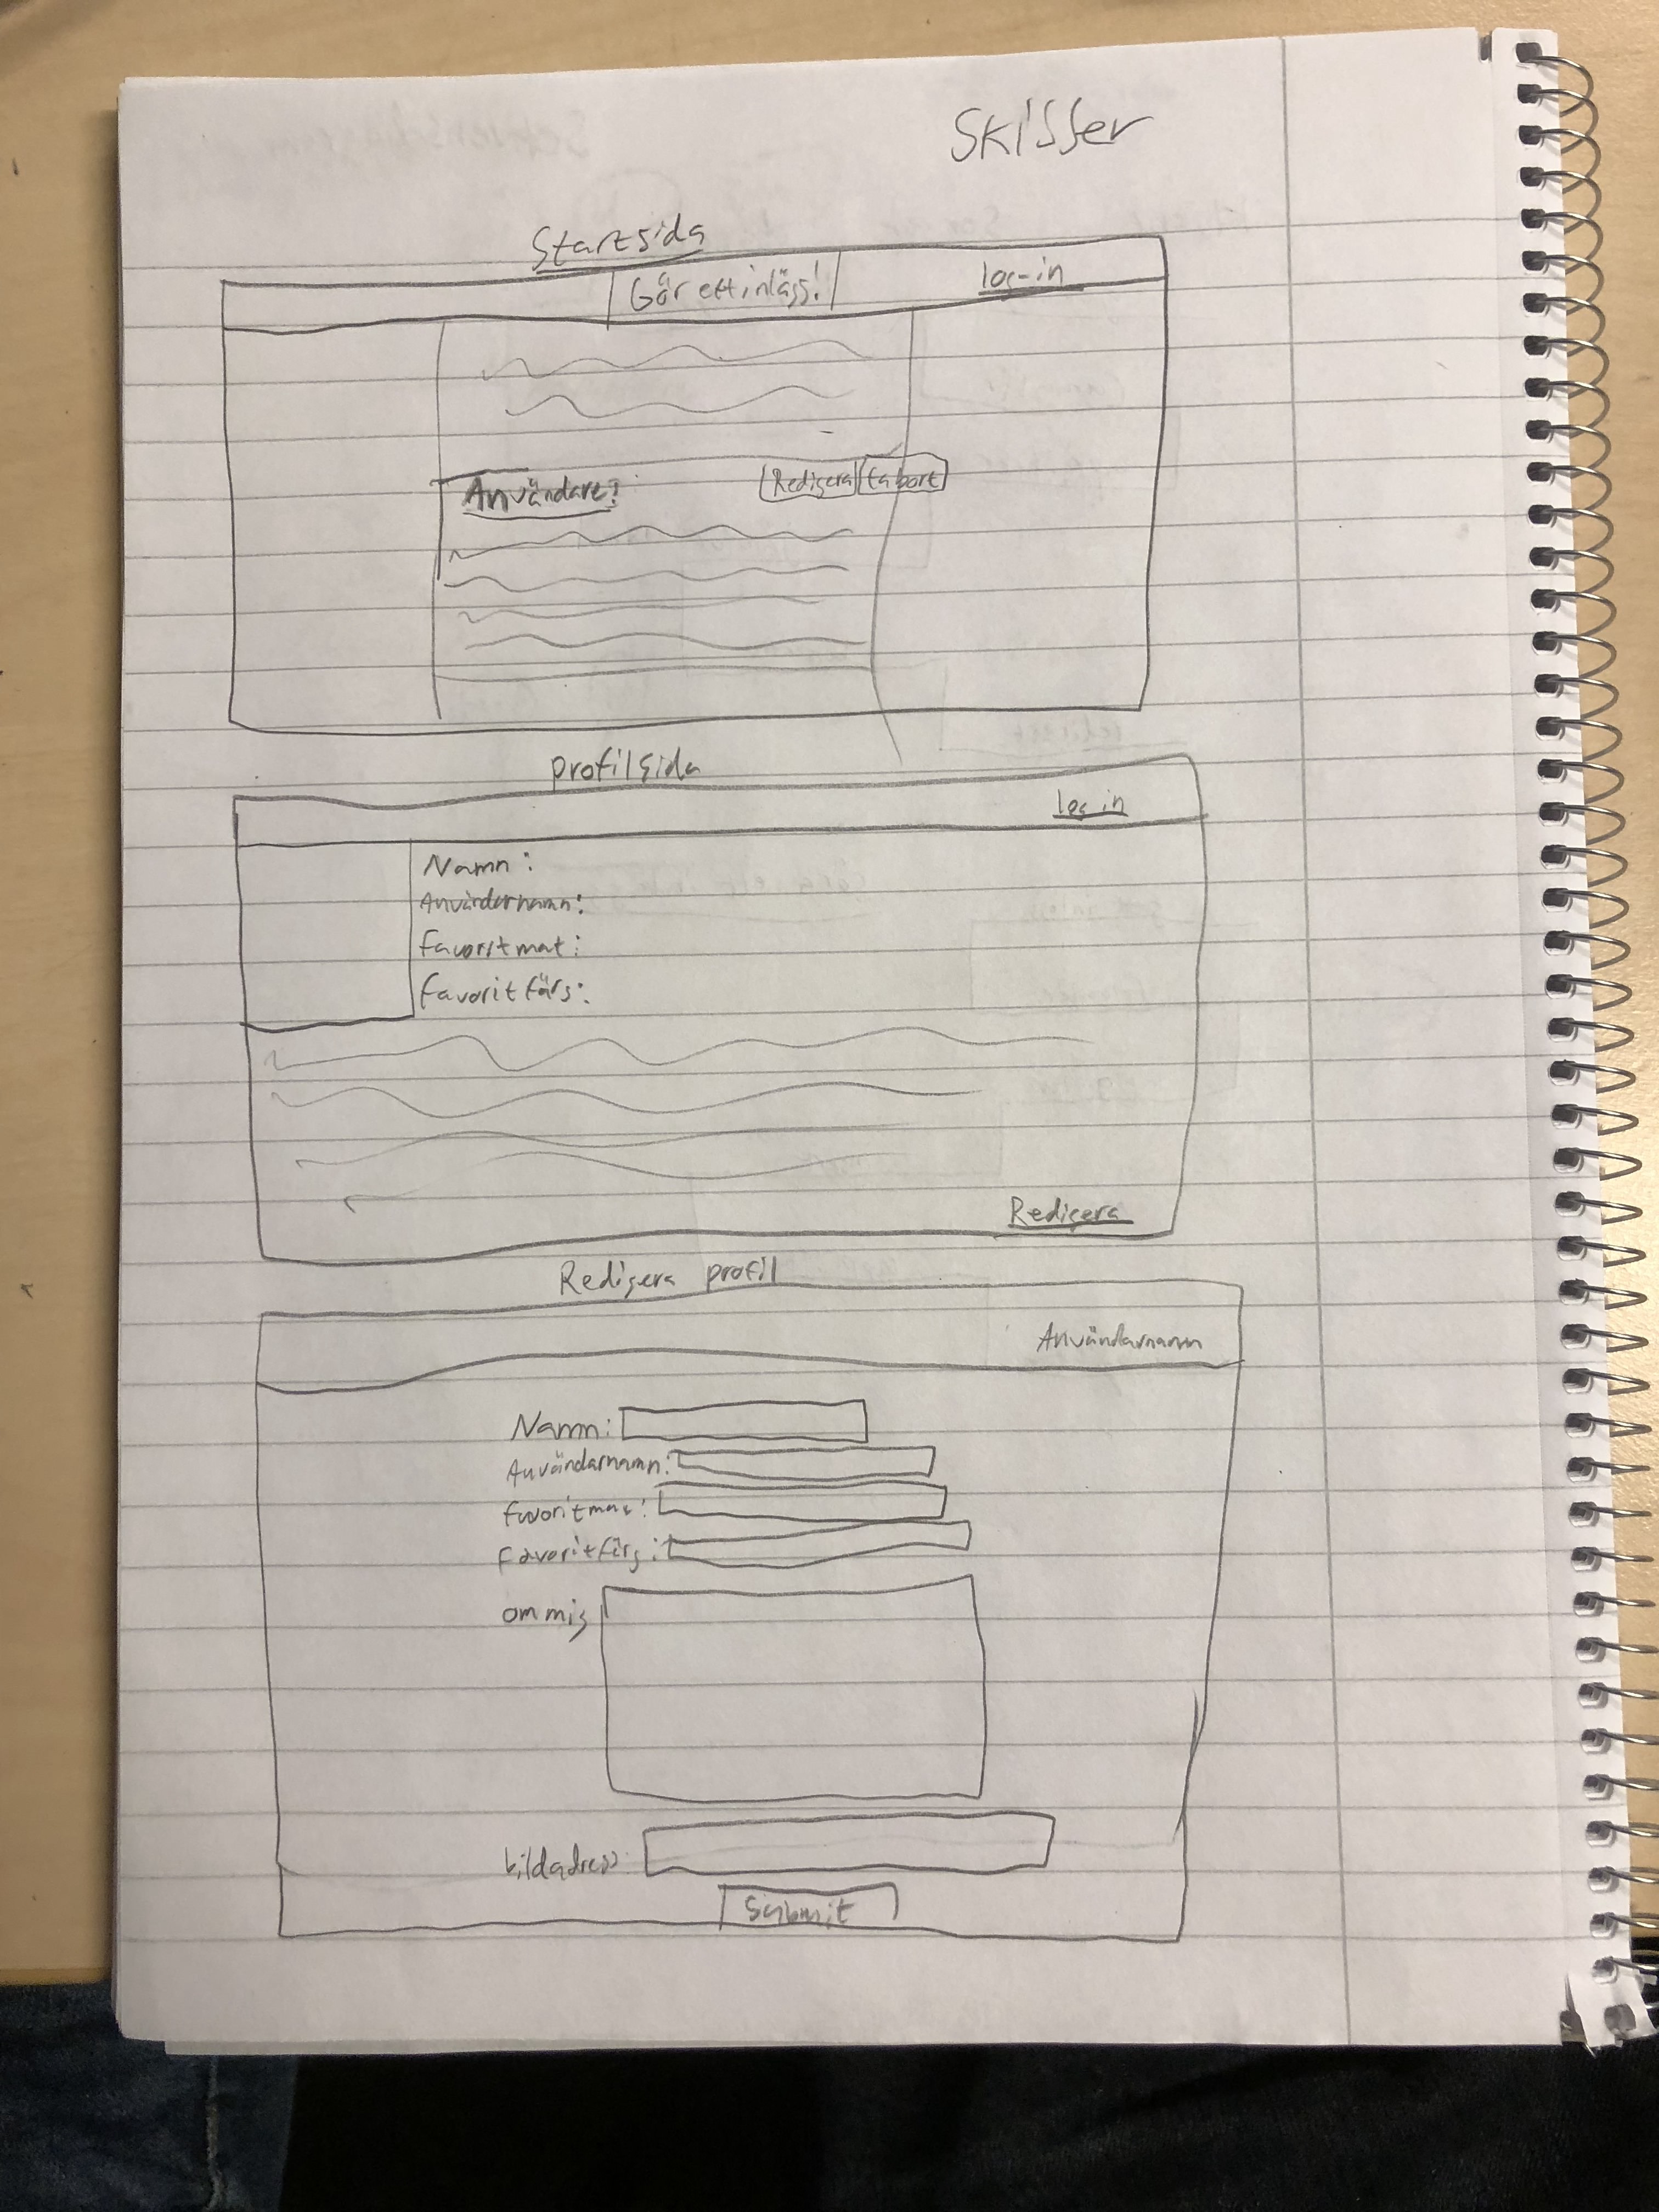 Skisser
Startsida
Gör ett inlägg! log-in
Användare: Redigera ta bort
profilsida
log in
Namn:
Användarnamn:
favoritmat:
favoritfärg:
Redigera
Redigera profil
Användarnamn
Namn:
Användarnamn:
favoritmat:
favoritfärg:
om mig
bildadress:
Submit